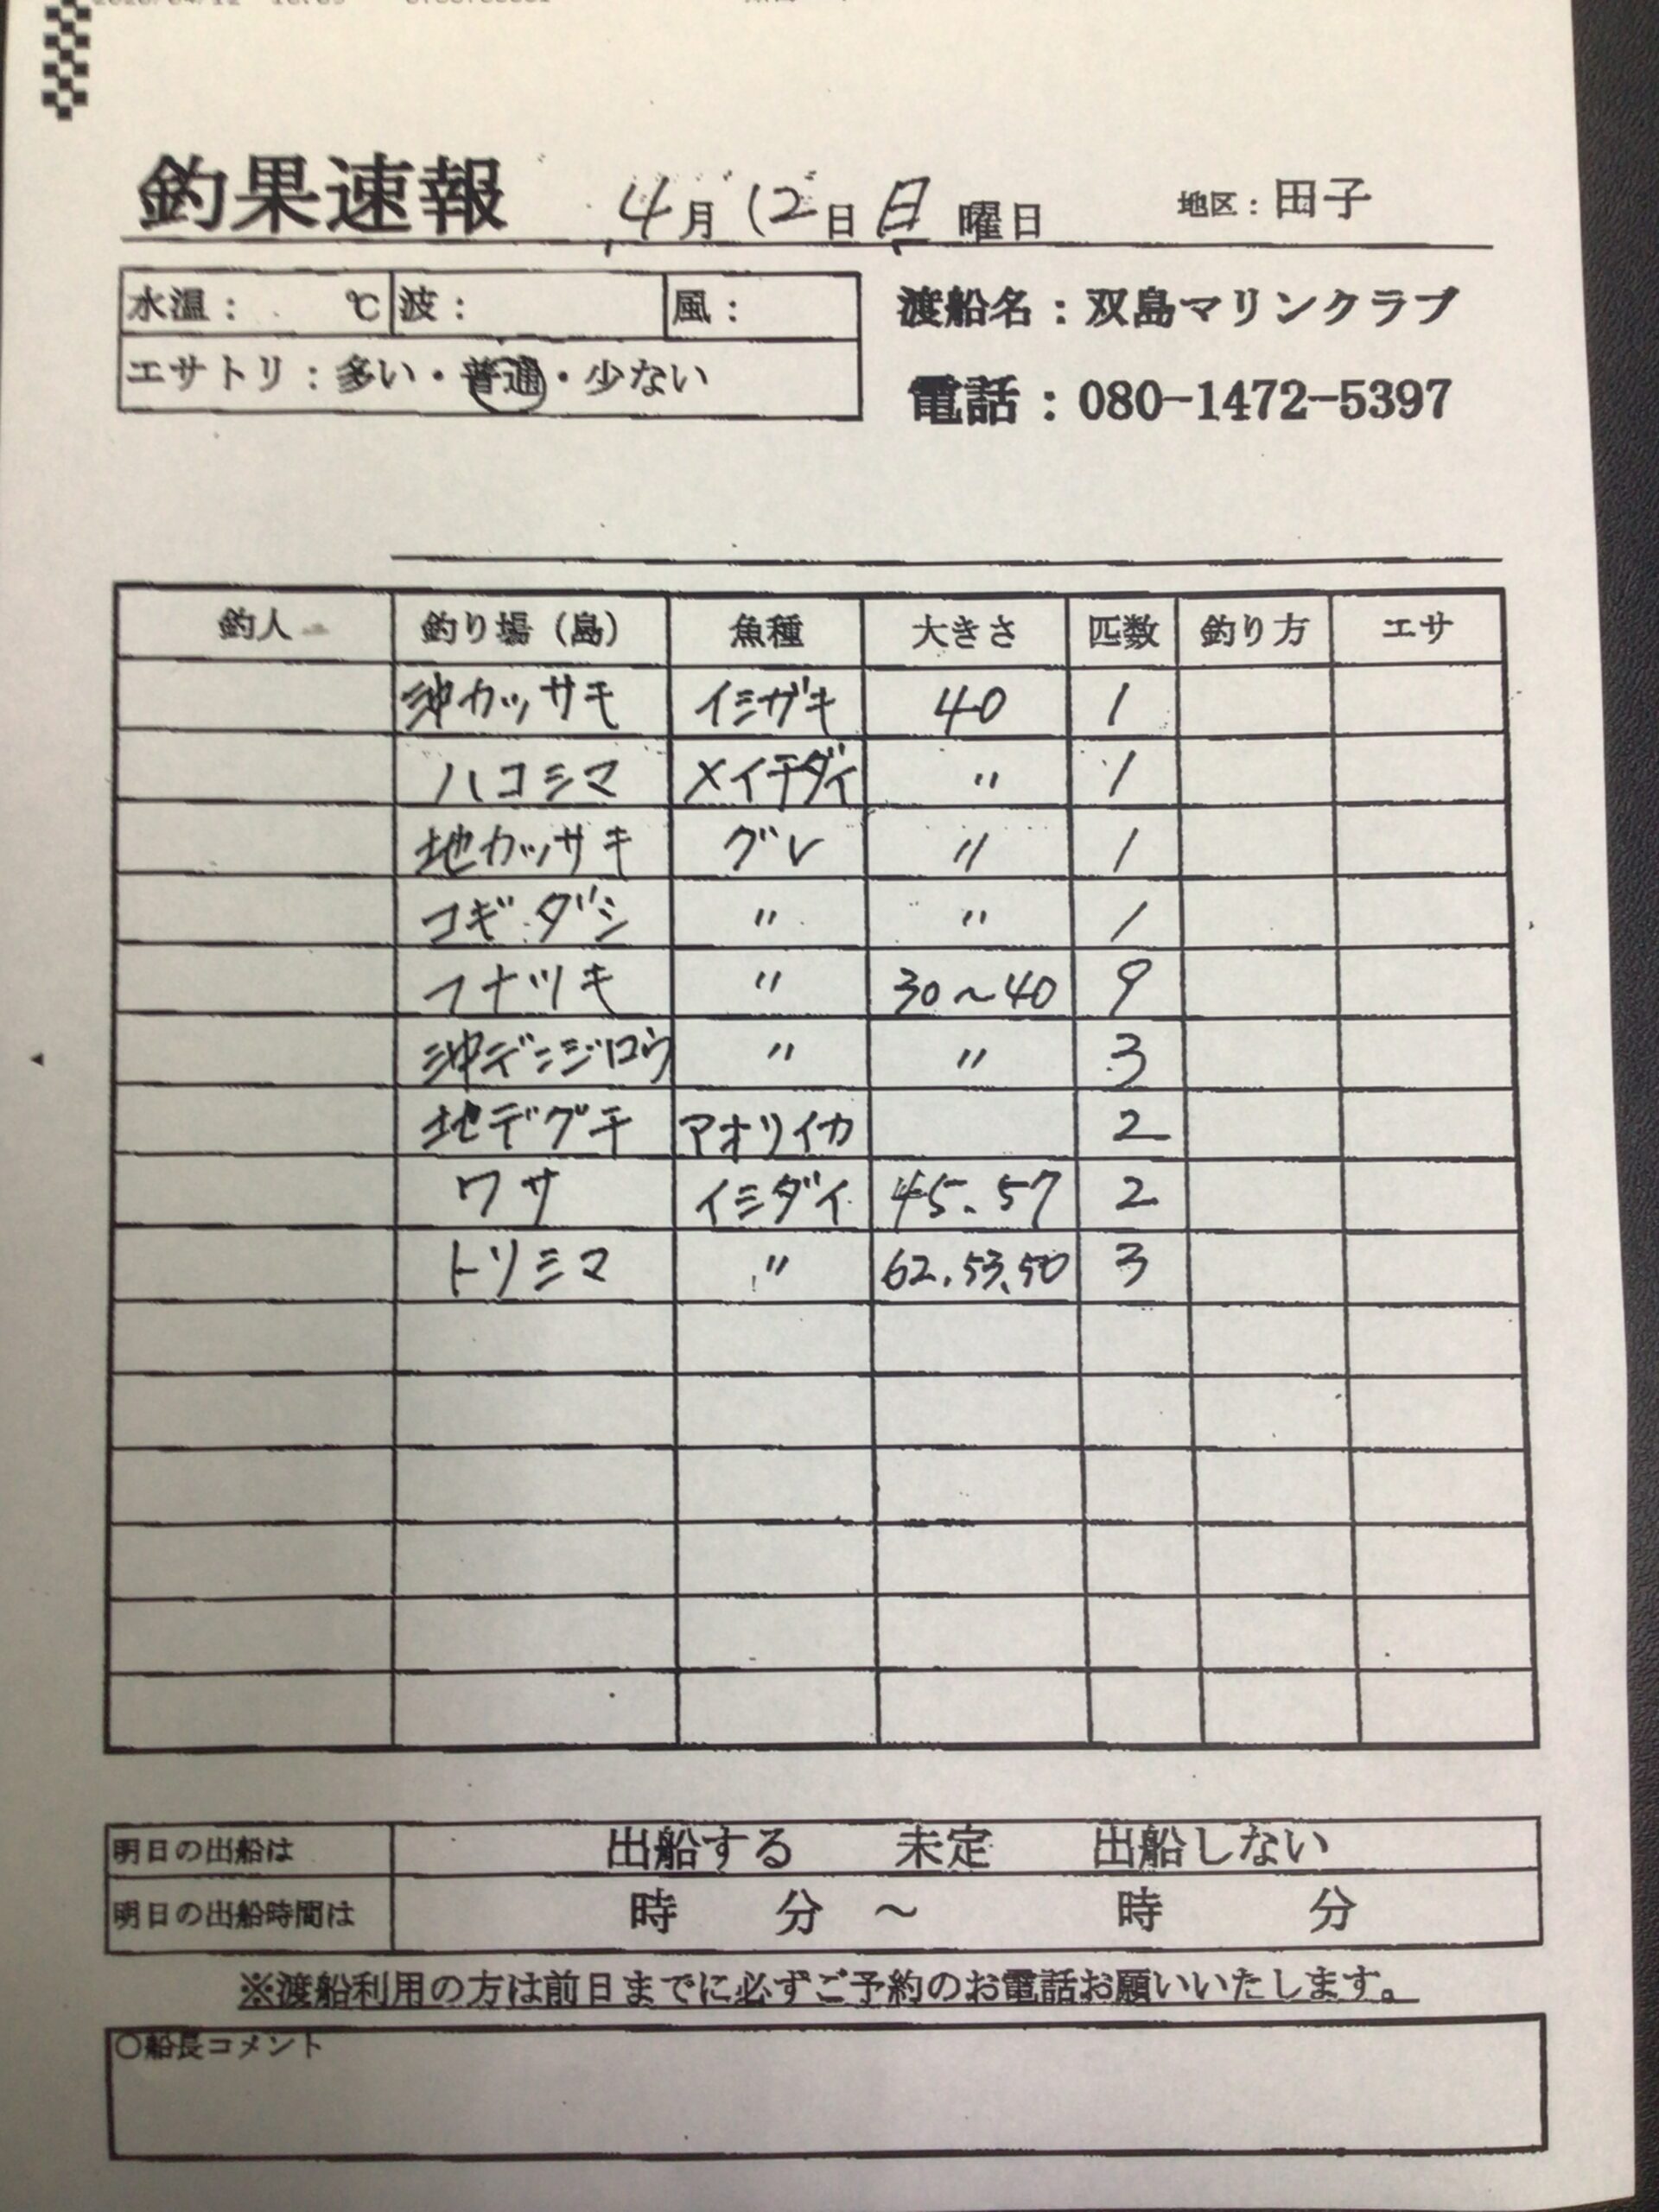 釣果速報 4月12日日曜日 地区：田子
水温： ℃ 波： 風： 渡船名：双島マリンクラブ
エサトリ：多い・普通・少ない 電話：080-1472-5397
釣人 釣り場（島） 魚種 大きさ 匹数 釣り方 エサ
沖カッサキ イシガキ 40 1
ハコシマ メイチダイ 〃 1
地カッサキ グレ 〃 1
コギダシ 〃 〃 1
フナツキ 〃 30〜40 9
沖デンジロウ 〃 〃 3
地デグチ アオリイカ 2
ワサ イシダイ 45.57 2
トリシマ 〃 62.53.50 3
明日の出船は 出船する 未定 出船しない
明日の出船時間は 時 分 〜 時 分
※渡船利用の方は前日までに必ずご予約のお電話お願いいたします。
〇船長コメント